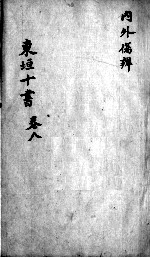 內外傷辨
東垣十書 卷八